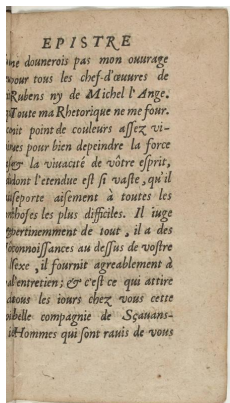 EPISTRE
ne dounerois pas mon ouurage
pour tous les chef-d'œuures de
Rubens ny de Michel l'Ange.
Toute ma Rhetorique ne me four-
nit point de couleurs aſſez vi-
ues pour bien depeindre la force
& la viuacité de vôtre eſprit,
dont l'etendue eſt ſi vaſte, qu'il
ſeporte aiſement à toutes les
choſes les plus difficiles. Il iuge
pertinemment de tout, il a des
connoiſſances au deſſus de voſtre
ſexe, il fournit agreablement à
l'entretien; & c'eſt ce qui attire
tous les iours chez vous cette
belle compagnie de Sçauans-
Hommes qui ſont rauis de vous